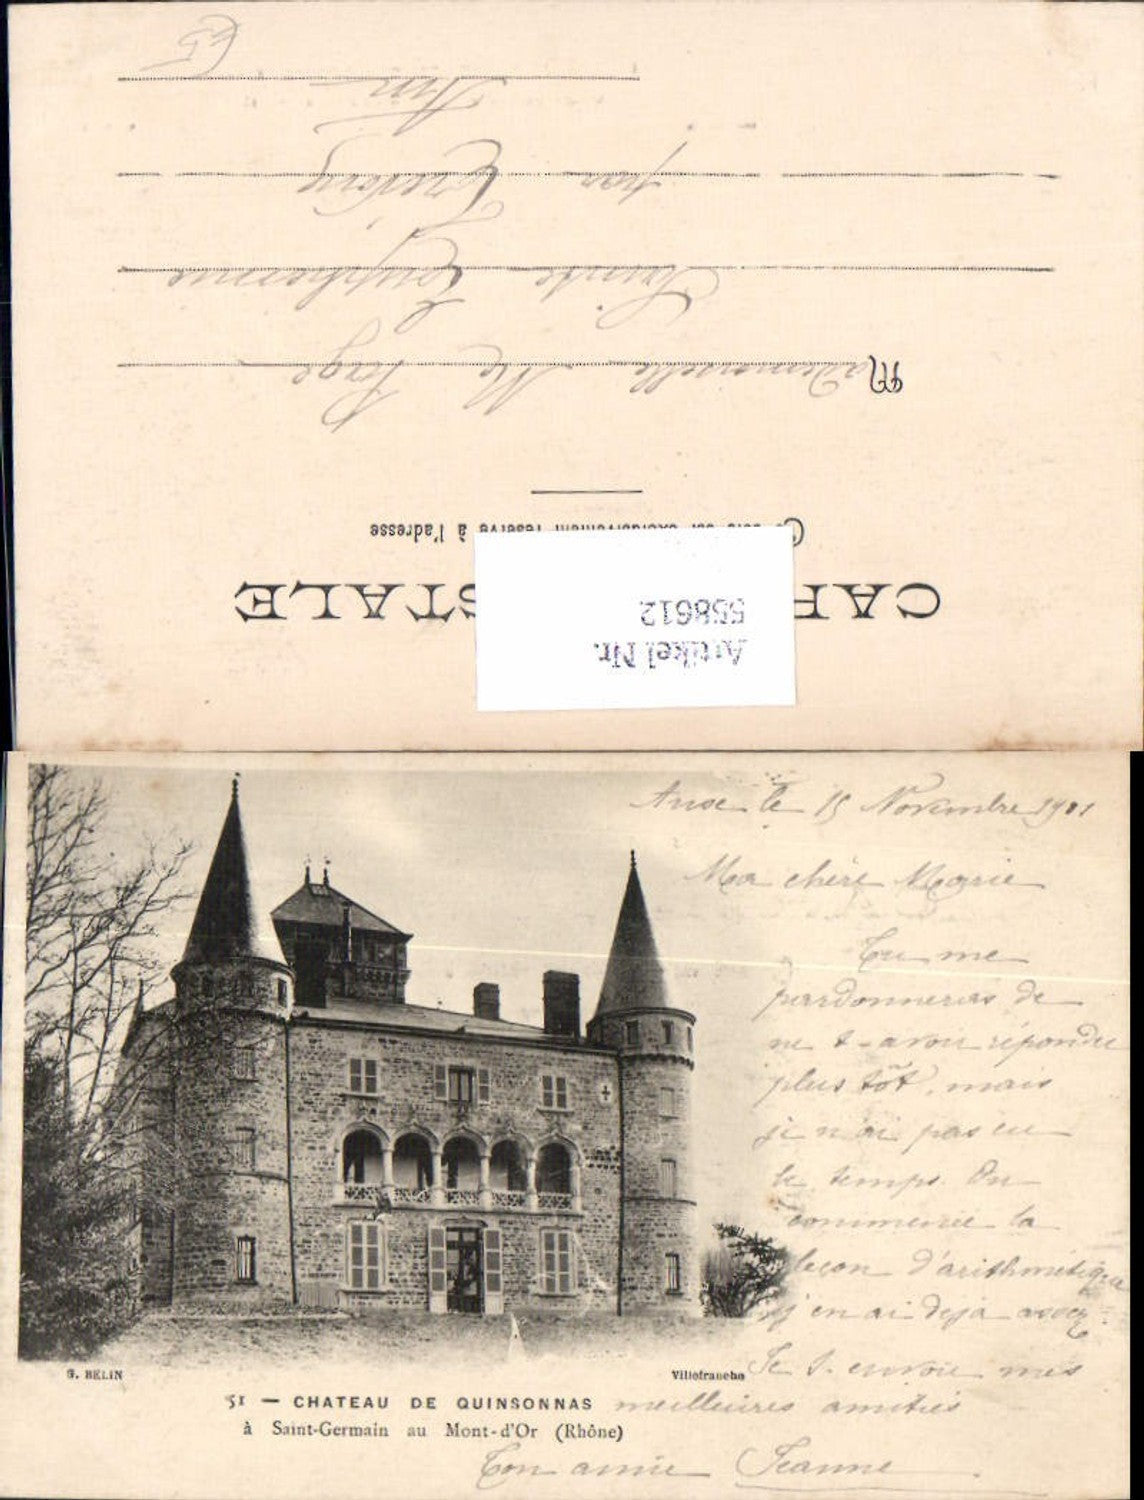 CARTE POSTALE
Ce côté est exclusivement réservé à l'adresse
Artikel Nr.
558612
Mademoiselle Me
Sainte Euphémie
par Trévoux
Ain
Anse le 15 Novembre 1901
Ma chère Marie
Tu me
pardonneras de
ne t-avoir répondu
plus tôt, mais
je n'ai pas eu
le temps. On
commence la
leçon d'arithmétique
j'en ai déjà assez
Je t'envoie mes
meilleures amitiés
Ton amie Jeanne
G. BELIN
Villefranche
51 — CHATEAU DE QUINSONNAS
à Saint-Germain au Mont-d'Or (Rhône)